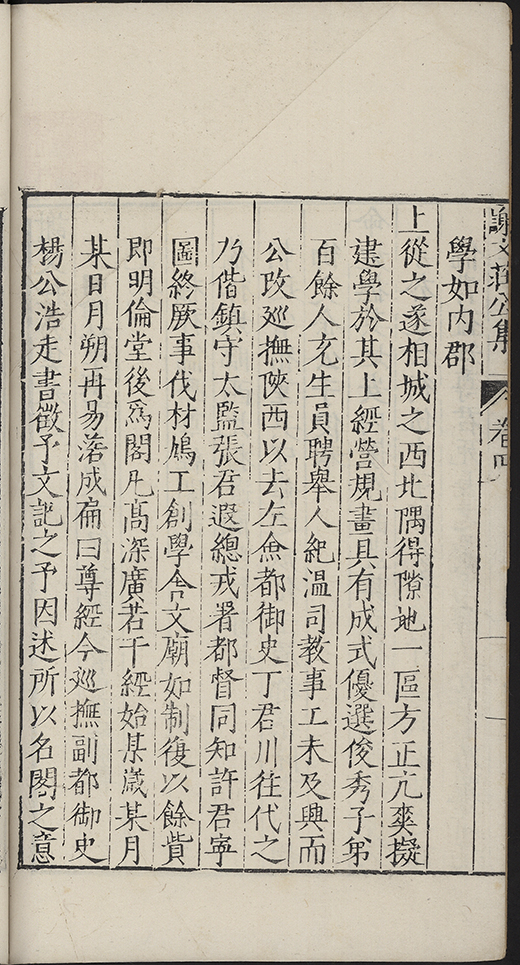 謝文莊公集 卷四
學如内郡
上從之遂相城之西北隅得隙地一區方正亢爽擬
建學於其上經營規畫具有成式優選俊秀子弟
百餘人充生員聘舉人紀温司教事工未及興而
公改廵撫陝西以去左僉都御史丁君川往代之
乃偕鎮守太監張君遐總戎署都督同知許君寧
圖終厥事伐材鳩工創學舍文廟如制復以餘貲
即明倫堂後爲閣凡高深廣若干經始某歳某月
某日月朔再易落成扁曰尊經今廵撫副都御史
楊公浩走書徵予文記之予因述所以名閣之意